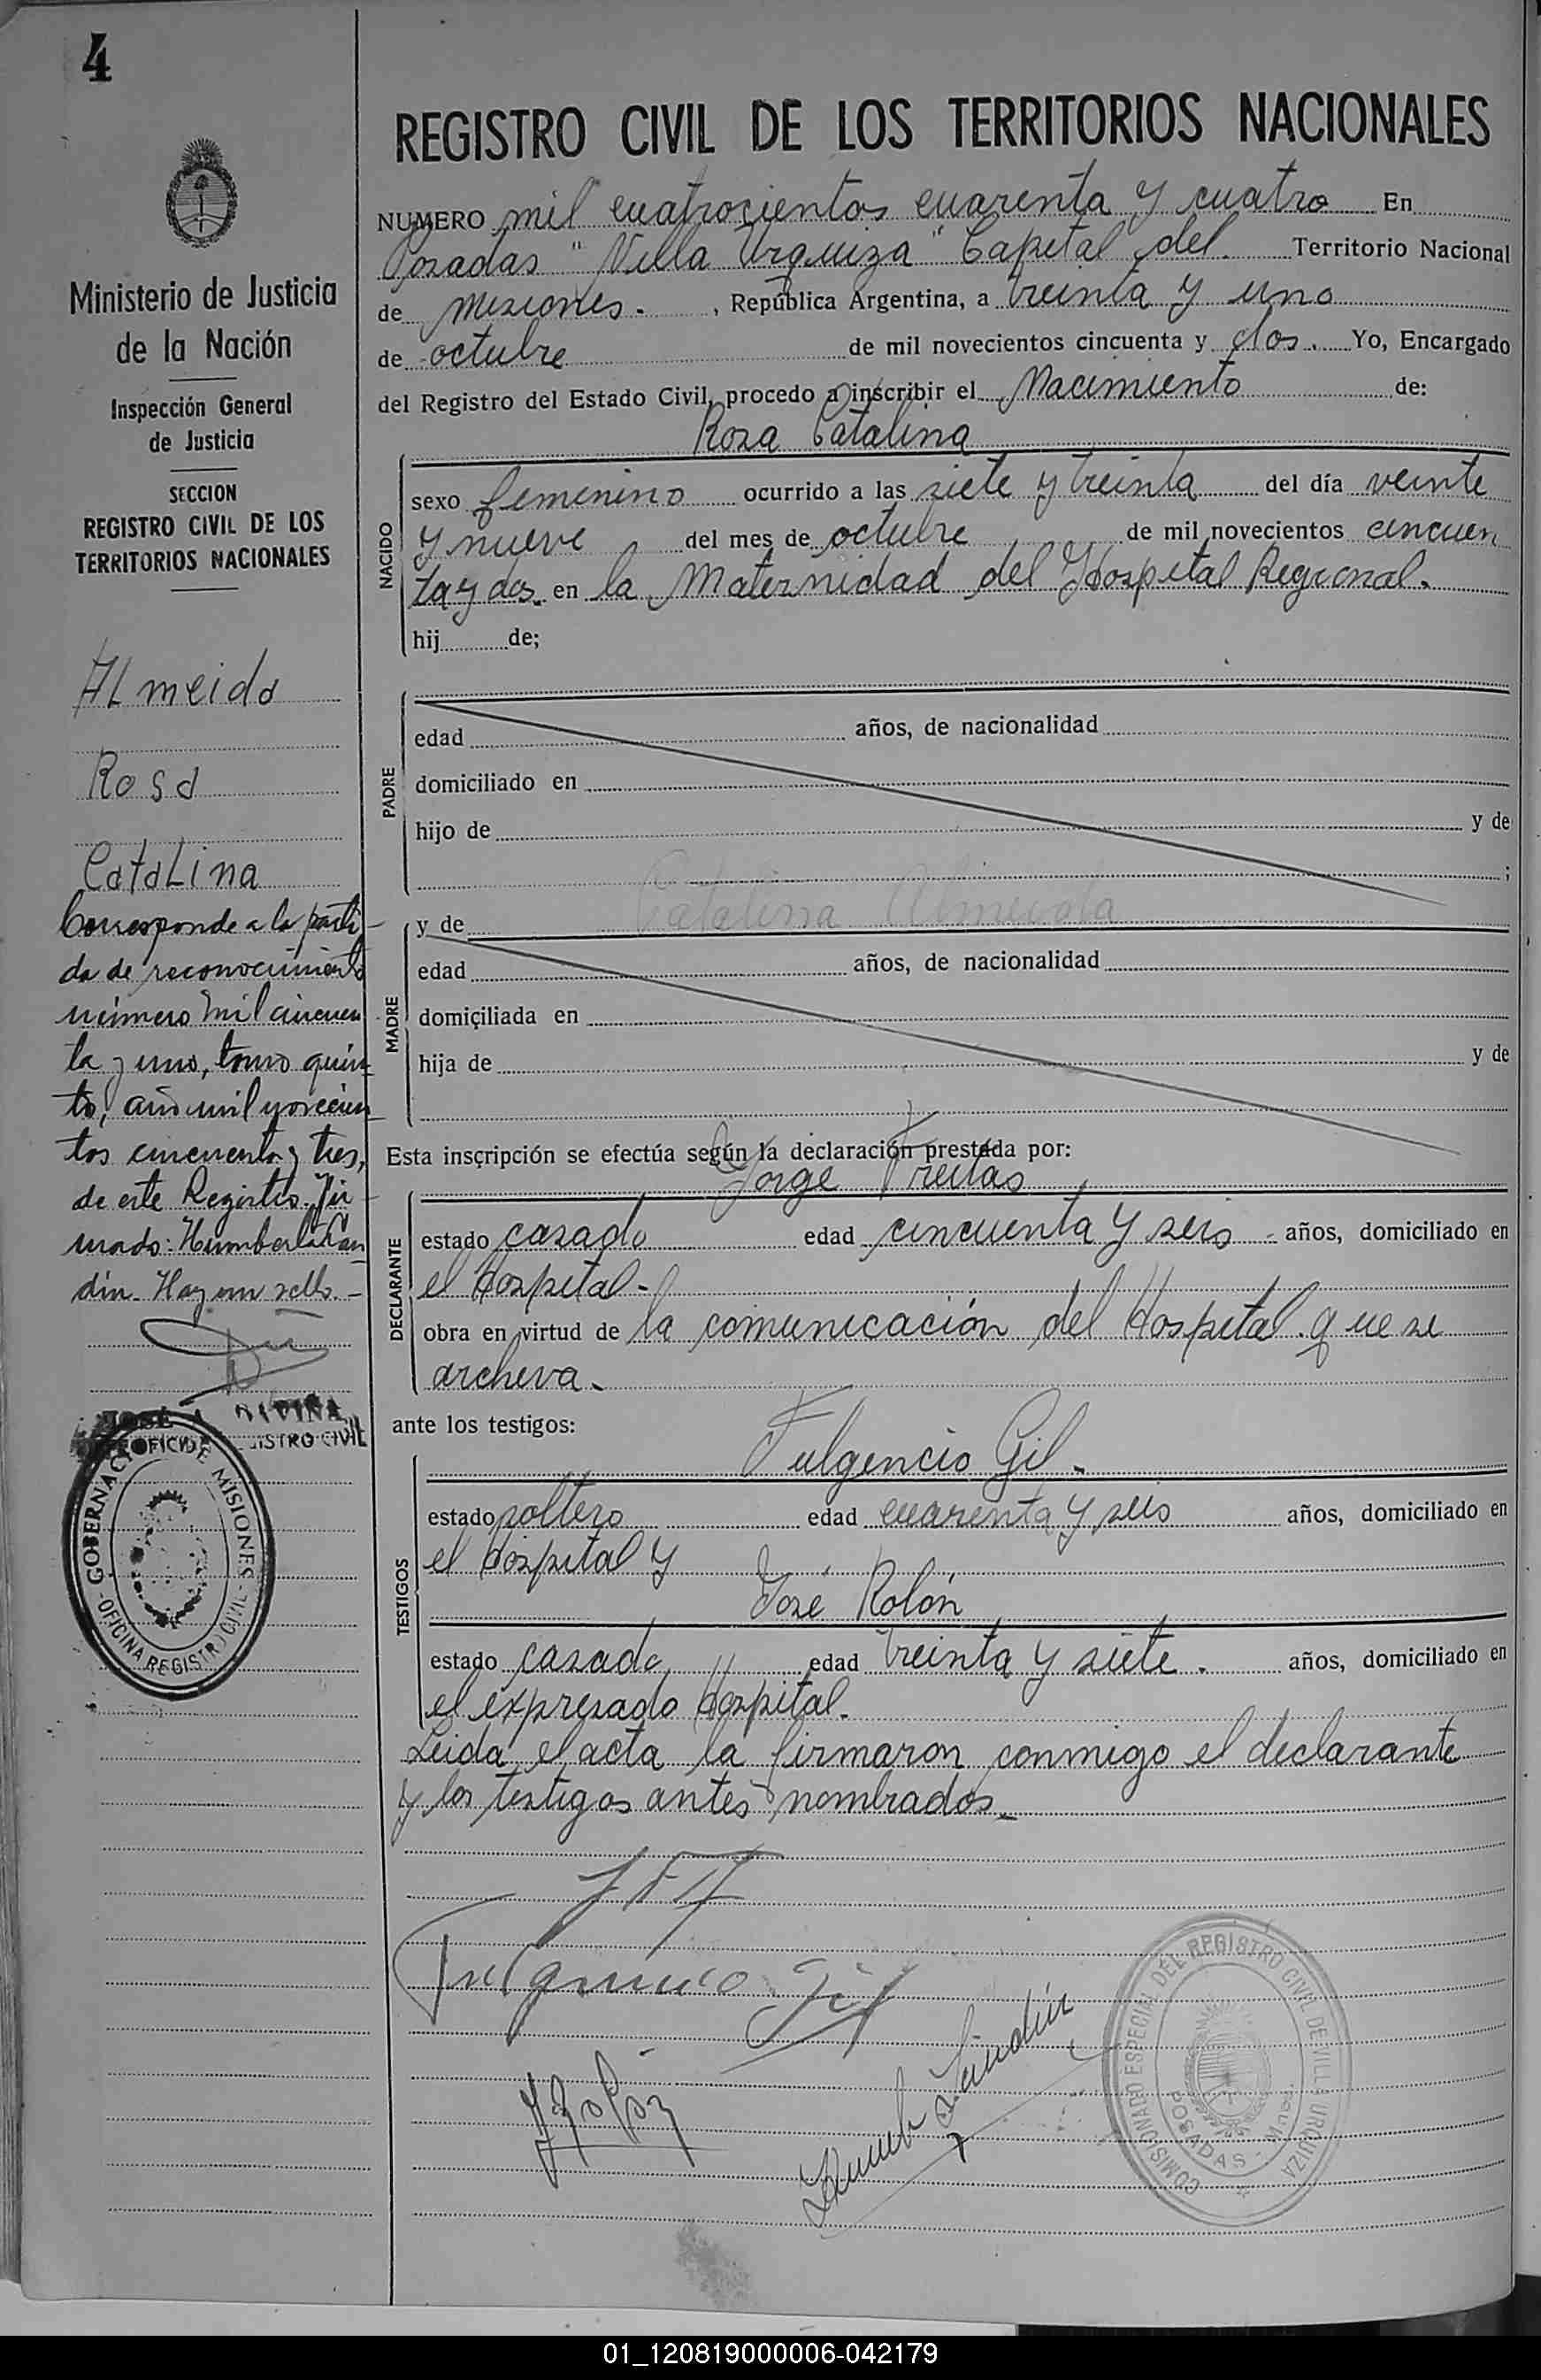 4
REGISTRO CIVIL DE LOS TERRITORIOS NACIONALES
Ministerio de Justicia
de la Nación
Inspección General
de Justicia
SECCION
REGISTRO CIVIL DE LOS
TERRITORIOS NACIONALES
ALmeida
Rosa
CataLina
Corresponde a la parti-
da de reconocimiento
número mil cincuen
ta y uno, tomo quin
to, año mil novecien
tos cincuenta y tres,
de este Registro. Fir-
mado: Humberto Lan
din. Hay un sello.-
JOSÉ A.
GOBERNACION DE MISIONES
-OFICINA REGISTRO CIVIL-
NUMERO mil cuatrocientos cuarenta y cuatro En
Posadas "Villa Urquiza" Capital del. Territorio Nacional
de Misiones. , República Argentina, a treinta y uno
de octubre de mil novecientos cincuenta y dos. Yo, Encargado
del Registro del Estado Civil, procedo a inscribir el Nacimiento de:
Rosa Catalina
NACIDO
sexo femenino ocurrido a las siete y treinta del día veinte
y nueve del mes de octubre de mil novecientos cincuen
ta y dos. en la Maternidad del Hospital Regional.
hij de;
PADRE
edad años, de nacionalidad
domiciliado en
hijo de y de
;
y de Catalina Almeida
MADRE
edad años, de nacionalidad
domiciliada en
hija de y de
Esta inscripción se efectúa según la declaración prestada por:
Jorge Freitas
DECLARANTE
estado casado edad cincuenta y seis años, domiciliado en
el Hospital-
obra en virtud de la comunicación del Hospital que se
archiva.
ante los testigos:
Fulgencio Gil.
TESTIGOS
estado soltero edad cuarenta y seis años, domiciliado en
el Hospital y
José Rolón
estado casado edad treinta y siete. años, domiciliado en
el expresado Hospital.
Leida el acta la firmaron conmigo el declarante
y los testigos antes nombrados.
Fulgencio Gil
JRolón
Humb Landin
COMISIONADO ESPECIAL DEL REGISTRO CIVIL DE VILLA URQUIZA
POSADAS
01_120819000006-042179